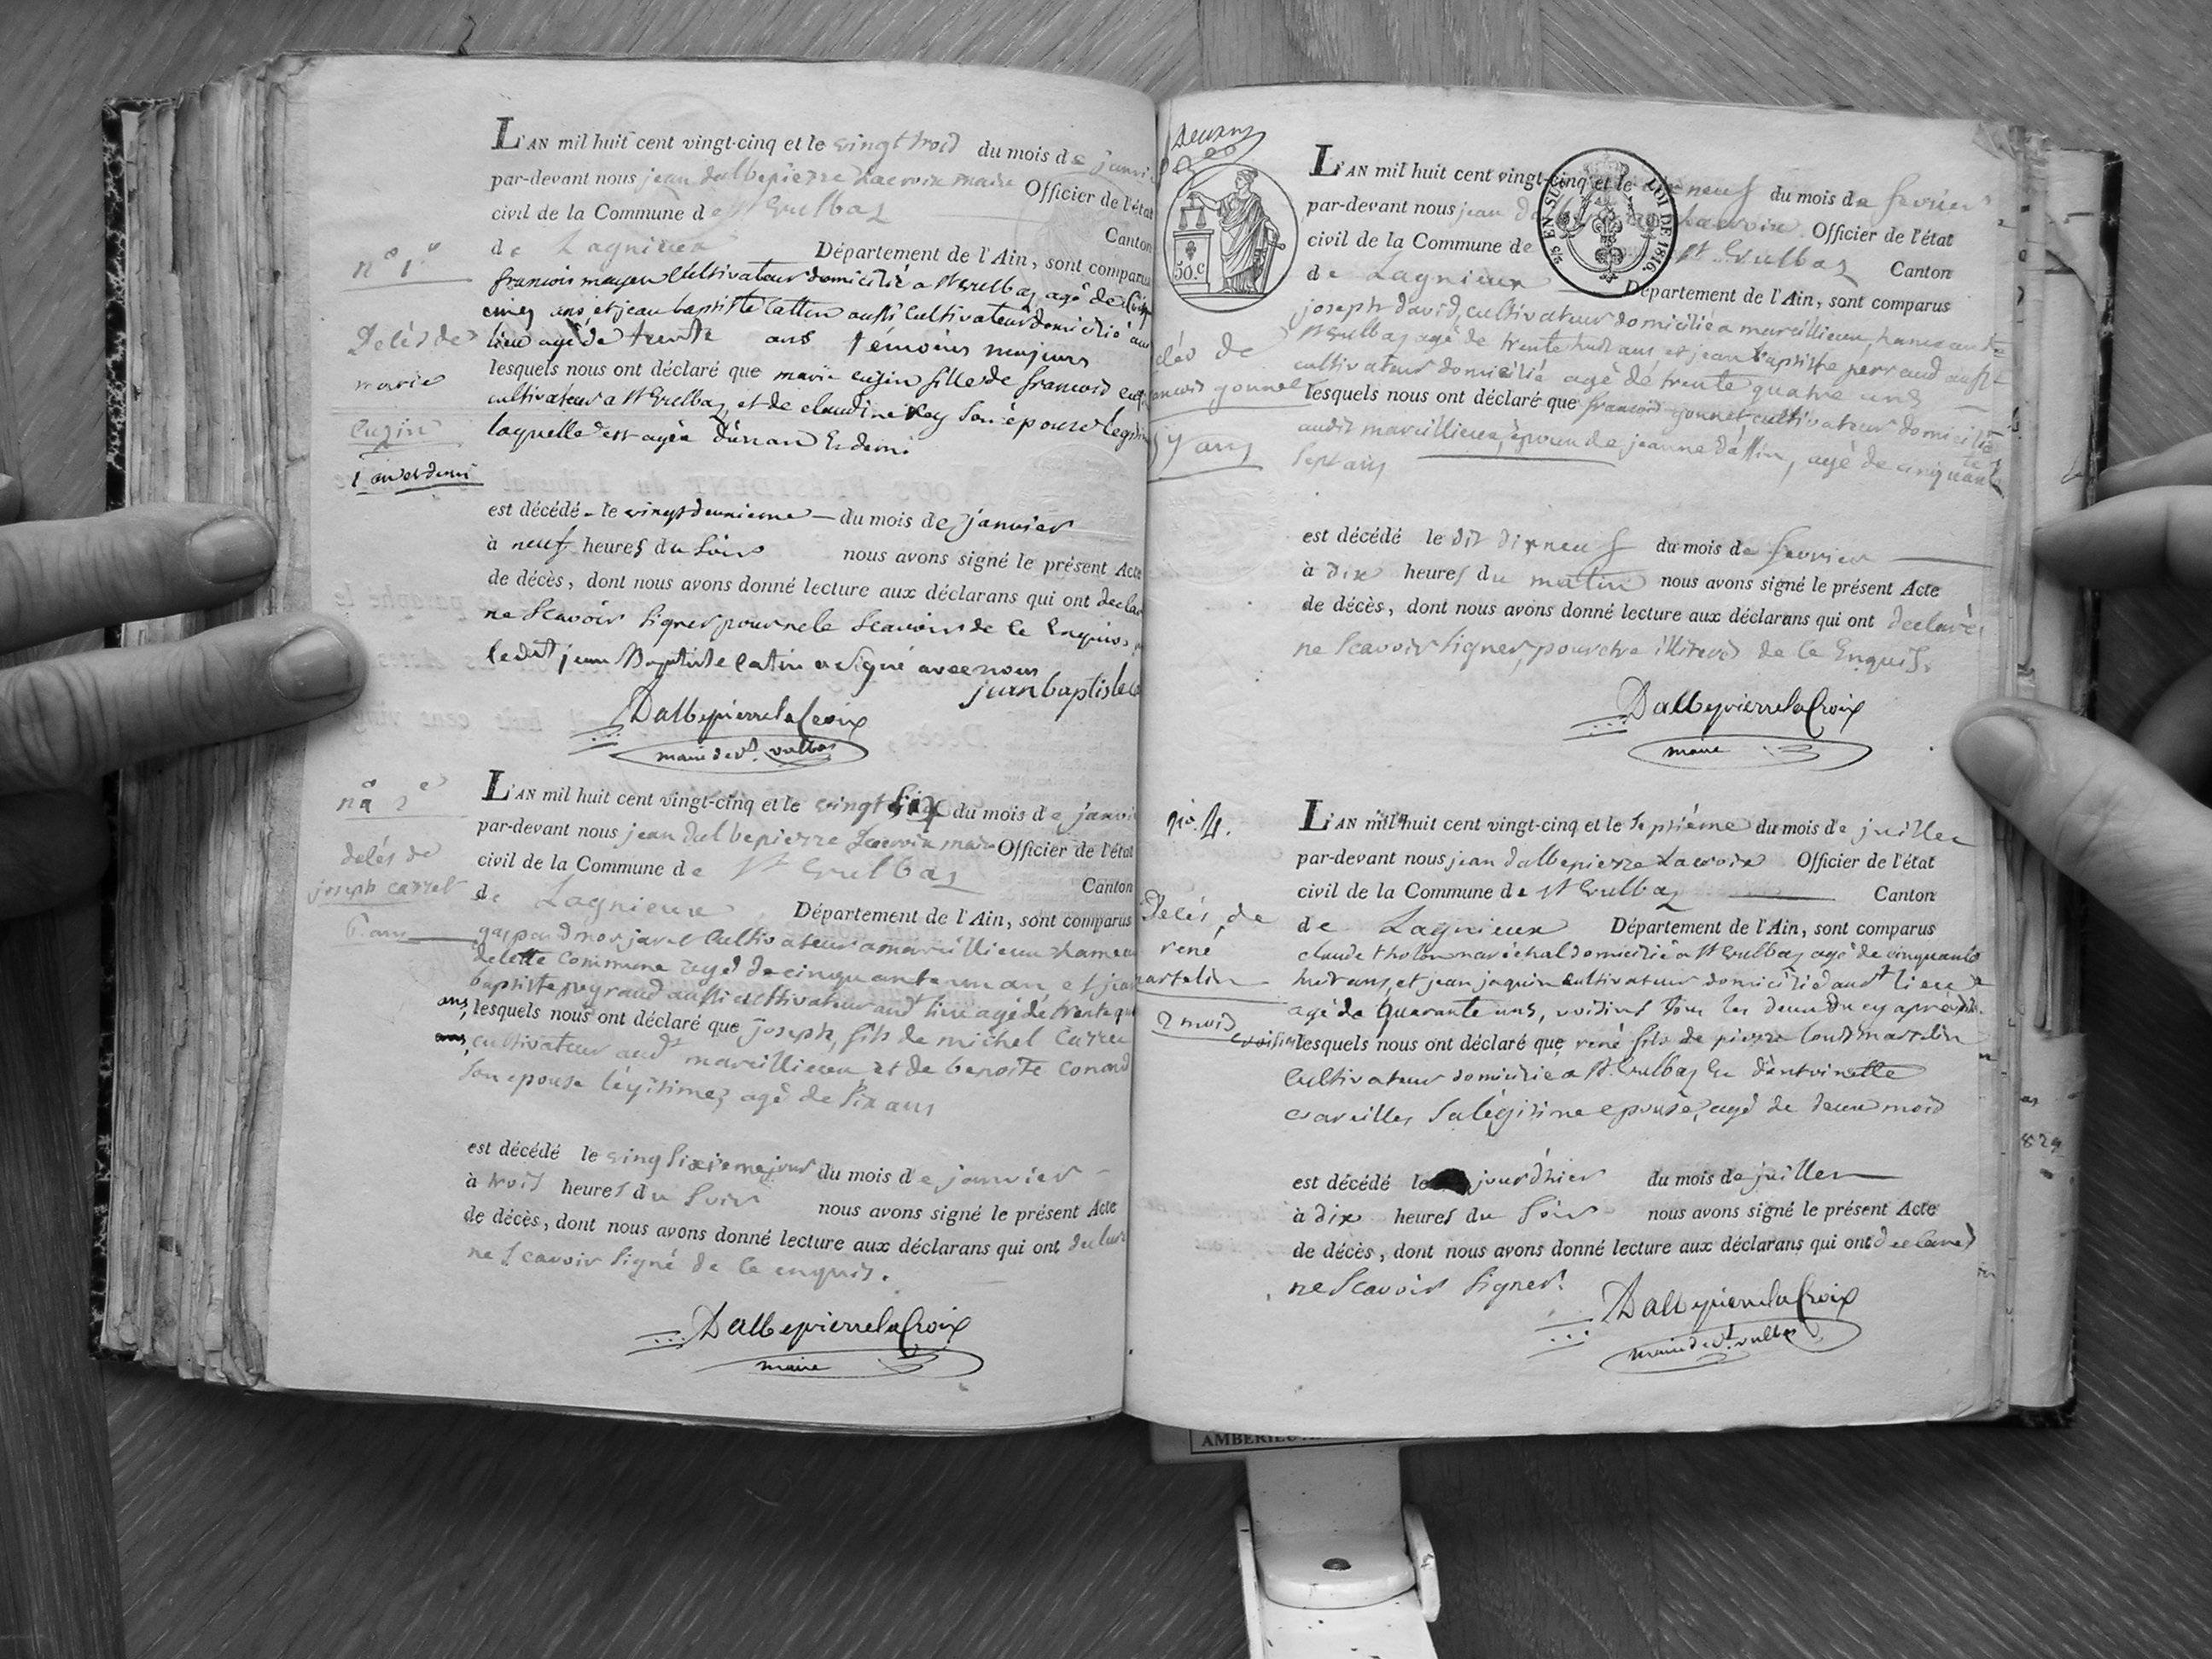 n° 1er
Décès de
marie
Cuzin
1 an et demi
L'AN mil huit cent vingt-cinq et le vingt trois du mois de janvi
par-devant nous jean dalbepierre Lacroix maire Officier de l'état
civil de la Commune de St Vulbaz Canton
de Lagnieux Département de l'Ain, sont comparus
francois cultivateur domicilié a St Vulbaz agé de
cinq ans, et jean baptiste Cattin aussi Cultivateur domicilié au
lieu agé de trente ans témoins majeurs
lesquels nous ont déclaré que marie cuzin fille de francois cuz
cultivateur a St Vulbaz, et de claudine Rey son épouse legitim
laquelle est agée d'un an Et demi
est décédé le vingt deuxieme du mois de janvier
à neuf heures du Soir nous avons signé le présent Acte
de décès, dont nous avons donné lecture aux déclarans qui ont declar
ne Scavoir Signer pour ne le Scavoir de ce Enquis,
ledit jean Baptiste Catin a signé avec nous
jean baptiste ca
DalbepierrelaCroix
maire de St. vulbas
n° 2e
décés de
joseph carret
6 ans
L'AN mil huit cent vingt-cinq et le vingt six du mois de janvi
par-devant nous jean dalbepierre Lacroix maire Officier de l'état
civil de la Commune de St Vulbaz Canton
de Lagnieux Département de l'Ain, sont comparus
gaspard Cultivateur a marcillieux hameau
de cette Commune agé de cinquante un an et jean
baptiste peyraud aussi cultivateur aud lieu agé de trente qu
ans, lesquels nous ont déclaré que joseph, fils de michel Carre
cultivateur audt marcillieux et de benoite Conand
son epouse légitime, agé de Six ans
est décédé le vingt Sixieme jour du mois de janvier
à trois heures du Soir nous avons signé le présent Acte
de décès, dont nous avons donné lecture aux déclarans qui ont declaré
ne Scavoir Signé de ce enquis.
DalbepierrelaCroix
maire
50.c
EN SUS
LOI DE 1816.
décés de
francois gonnet
57 ans
L'AN mil huit cent vingt-cinq et le dix neuf du mois de fevrier
par-devant nous jean Lacroix Officier de l'état
civil de la Commune de St Vulbaz Canton
de Lagnieux Département de l'Ain, sont comparus
joseph david, cultivateur domicilié a marcillieux, hameau de
St Vulbaz agé de trente huit ans et jean baptiste perraud aussi
cultivateur domicilié agé de trente quatre ans
lesquels nous ont déclaré que francois gonnet, cultivateur domicilié
audit marcillieux, époux de jeanne dattin, agé de cinquante
Sept ans
est décédé le dit dix neuf du mois de fevrier
à dix heures du matin nous avons signé le présent Acte
de décès, dont nous avons donné lecture aux déclarans qui ont declaré
ne Scavoir Signer, pour etre illiterés de ce Enquis.
DalbepierrelaCroix
maire
no. 4.
Décés, de
rené
martelin
2 mois
L'AN mil huit cent vingt-cinq et le Septiéme du mois de juillet
par-devant nous jean dalbepierre Lacroix Officier de l'état
civil de la Commune de St Vulbaz Canton
de Lagnieux Département de l'Ain, sont comparus
claude tholon maréchal domicilié a St Vulbaz agé de cinquante
huit ans, et jean jaquin cultivateur domicilié audt lieu
agé de quarante ans, voisins tous les deux du cy aprés
lesquels nous ont déclaré que rené fils de pierre louis martelin
Cultivateur domicilié a St Vulbaz Et d'antoinette
Sa légitime epouse, agé de deux mois
est décédé le jour d'hier du mois de juillet
à dix heures du Soir nous avons signé le présent Acte
de décès, dont nous avons donné lecture aux déclarans qui ont declaré
ne Scavoir Signer.
DalbepierrelaCroix
maire de St. vulbas